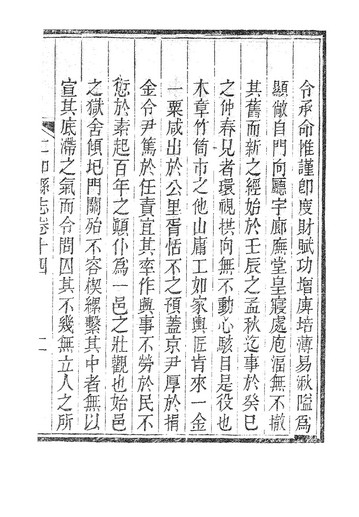 令承命惟謹卽度財賦功增庳培薄易湫隘爲
顯敞自門向廳宇廊廡堂皇寢處庖湢無不撤
其舊而新之經始於壬辰之孟秋迄事於癸巳
之仲春見者環視拱向無不動心駭目是役也
木章竹箇市之他山庸工如家輿匠肯來一金
一粟咸出於公里胥恬不之預蓋京尹厚於捐
金令尹篤於任責宜其率作興事不勞於民不
愆於素起百年之顛仆爲一邑之壯觀也始邑
之獄舍傾圮門關殆不容楔縲繫其中者無以
宣其底滯之氣而令問囚其不幾無立人之所
縣志卷十四
二